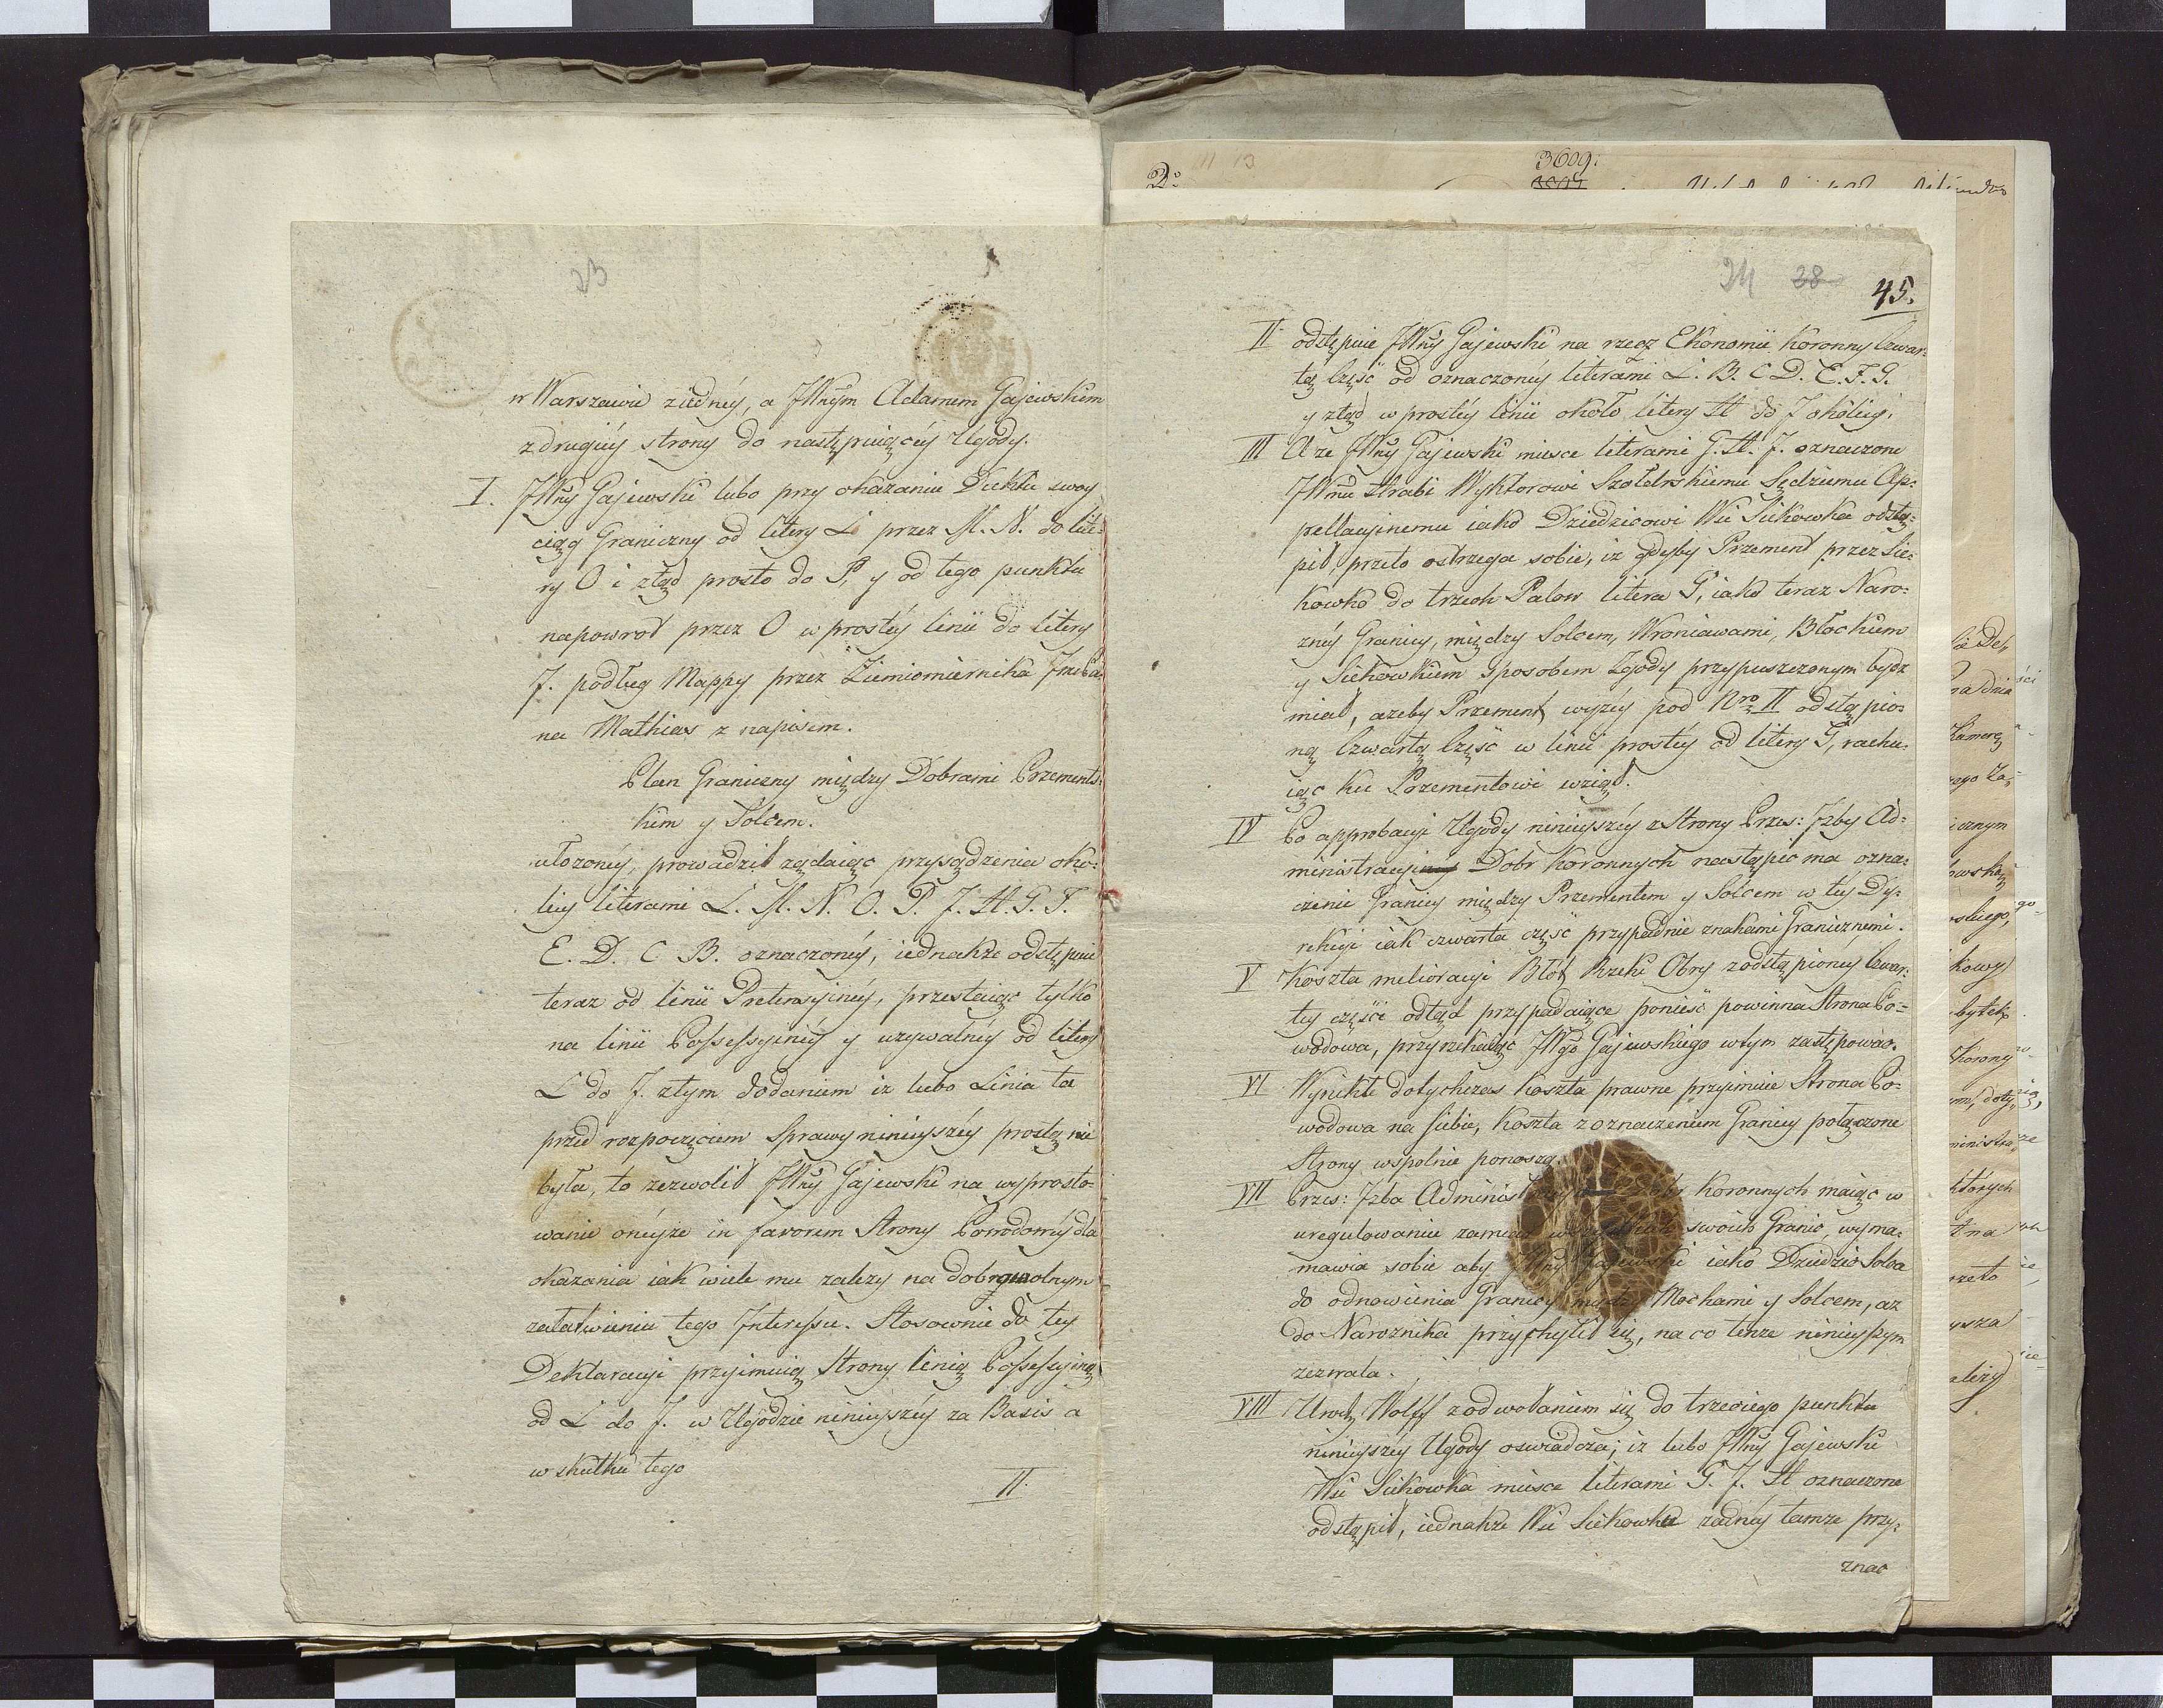 23
w Warszawie ziedney, a JWnym Adamem Gajewskim
z drugiey strony do następuiącey Ugody.
I. JWny Gajewski lubo przy okazaniu Duktu swoy
ciąg Graniczny od litery L przez M. N. do lite:
ry O i ztąd prosto do P, y od tego punktu
napowrot przez O w prostey linii do litery
J. podług Mappy przez Ziemiomiernika
na Mathias z napisem.
Plan Graniczny między Dobrami Przements:
kim y Solcem.
ułozoney, prowadził ządaiąc przysądzenia oko:
licy literami L. M. N. O. P. J. H. G. F.
E. D. C B. oznaczoney, iednakze odstępuie
teraz od linii Pretensyiney, przestaiąc tylko
na linii Possessyiney y uzywalney od litery
L do J. z tym dodaniem iz lubo Linia ta
przed rozpoczęciem Sprawy ninieyszey prostą nie
była, to zezwolił JWny Gajewski na wyprosto-
wanie oneyze in favorem Strony Powodowey dla
okazania iak wiele mu zalezy na dobrowolnym
załatwieniu tego Interessu. Stosownie do tey
Deklaracyi przyimuią Strony linią Possessyiną
od L do J. w Ugodzie ninieyszey za Basis a
w skutku tego
II.
2o
3609:
24 28
45.
II odstępuie JWny Gajewski na rzecz Ekonomii Koronny Czwar:
tą Część od oznaczoney literami L. B. C D. E. F. G.
y ztąd w prostey linii około litery H do J okolicy.
III A ze JWny Gajewski mieysce literami G. H. J. oznaczone
JWmu Hrabi Wyktorowi Szołdrskiemu Sędziemu Ap:
pellacyinemu iako Dziedzicowi Wsi Siekowka odstą:
pił, przeto ostrzega sobie, iz gdyby Przement przez Sie:
kowko do trzech Palow litera P, iako teraz Naro:
zney Granicy, między Solcem, Wroniawami, Błockiem
y Siekowkiem sposobem Zgody przypuszczonym bydz
miał, azeby Przement wyzey pod Nro II odstąpio:
ną Czwartą Część w linii prostey od litery G, rachu:
iąc ku Przementowi wziął.
IV Po approbacyi Ugody ninieyszey z Strony Prześ: Izby Ad:
ministracyi Dobr Koronnych nastąpic ma ozna:
czenie Granicy między Przementem y Solcem w tey Dy:
rekcyi iak czwarta część przypadnie znakami Granicznemi.
V Koszta melioracyi Błot Rzeki Obry z odstąpioney Czwar:
tey części odtąd przypadaiące ponieść powinna Strona Po=
wodowa, przyrzekaiąc JWgo Gajewskiego w tym zastępowac.
VI Wynikłe dotychczas koszta prawne przyimuie Strona Po=
wodowa na siebie, koszta z oznaczeniem Granicy połączone
Strony wspolnie ponoszą.
VII Prześ: Izba Koronnych maiąc w
uregulowaniu zamiar swoich Granic, wyma:
mawia sobie aby JWny Gajewski iako Dziedzic Solca
do odnowienia Granicy między Mochami y Solcem, az
do Naroznika przychylił się, na co tenze ninieyszym
zezwala.
VIII Urodz Wolff z odwołaniem się do trzeciego punktu
ninieyszey Ugody oswiadcza, iz lubo JWny Gajewski
Wsi Siekowka mieysce literami G. J. H oznaczone
odstąpił, iednakze Wsi Siekowka zadney tamze przy:
znac